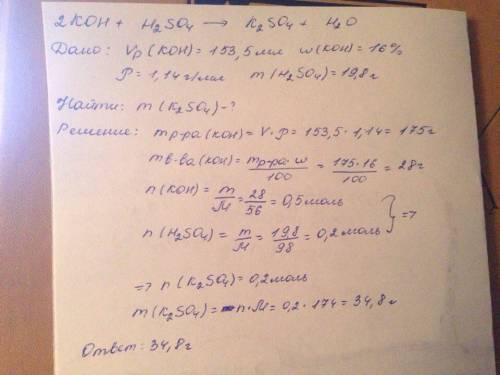 2KOH + H₂SO₄ → K₂SO₄ + H₂O
Дано: Vр (KOH) = 153,5 мл ω(KOH) = 16%
ρ = 1,14 г/мл m(H₂SO₄) = 19,8 г
Найти: m (K₂SO₄) - ?
Решение: m р-ра (KOH) = V·ρ = 153,5·1,14 = 175 г
m в-ва (KOH) = m р-ра·ω / 100 = 175·16 / 100 = 28 г
n (KOH) = m / M = 28 / 56 = 0,5 моль
n (H₂SO₄) = m / M = 19,8 / 98 = 0,2 моль } =>
=> n (K₂SO₄) = 0,2 моль
m (K₂SO₄) = n·M = 0,2·174 = 34,8 г
Ответ: 34,8 г